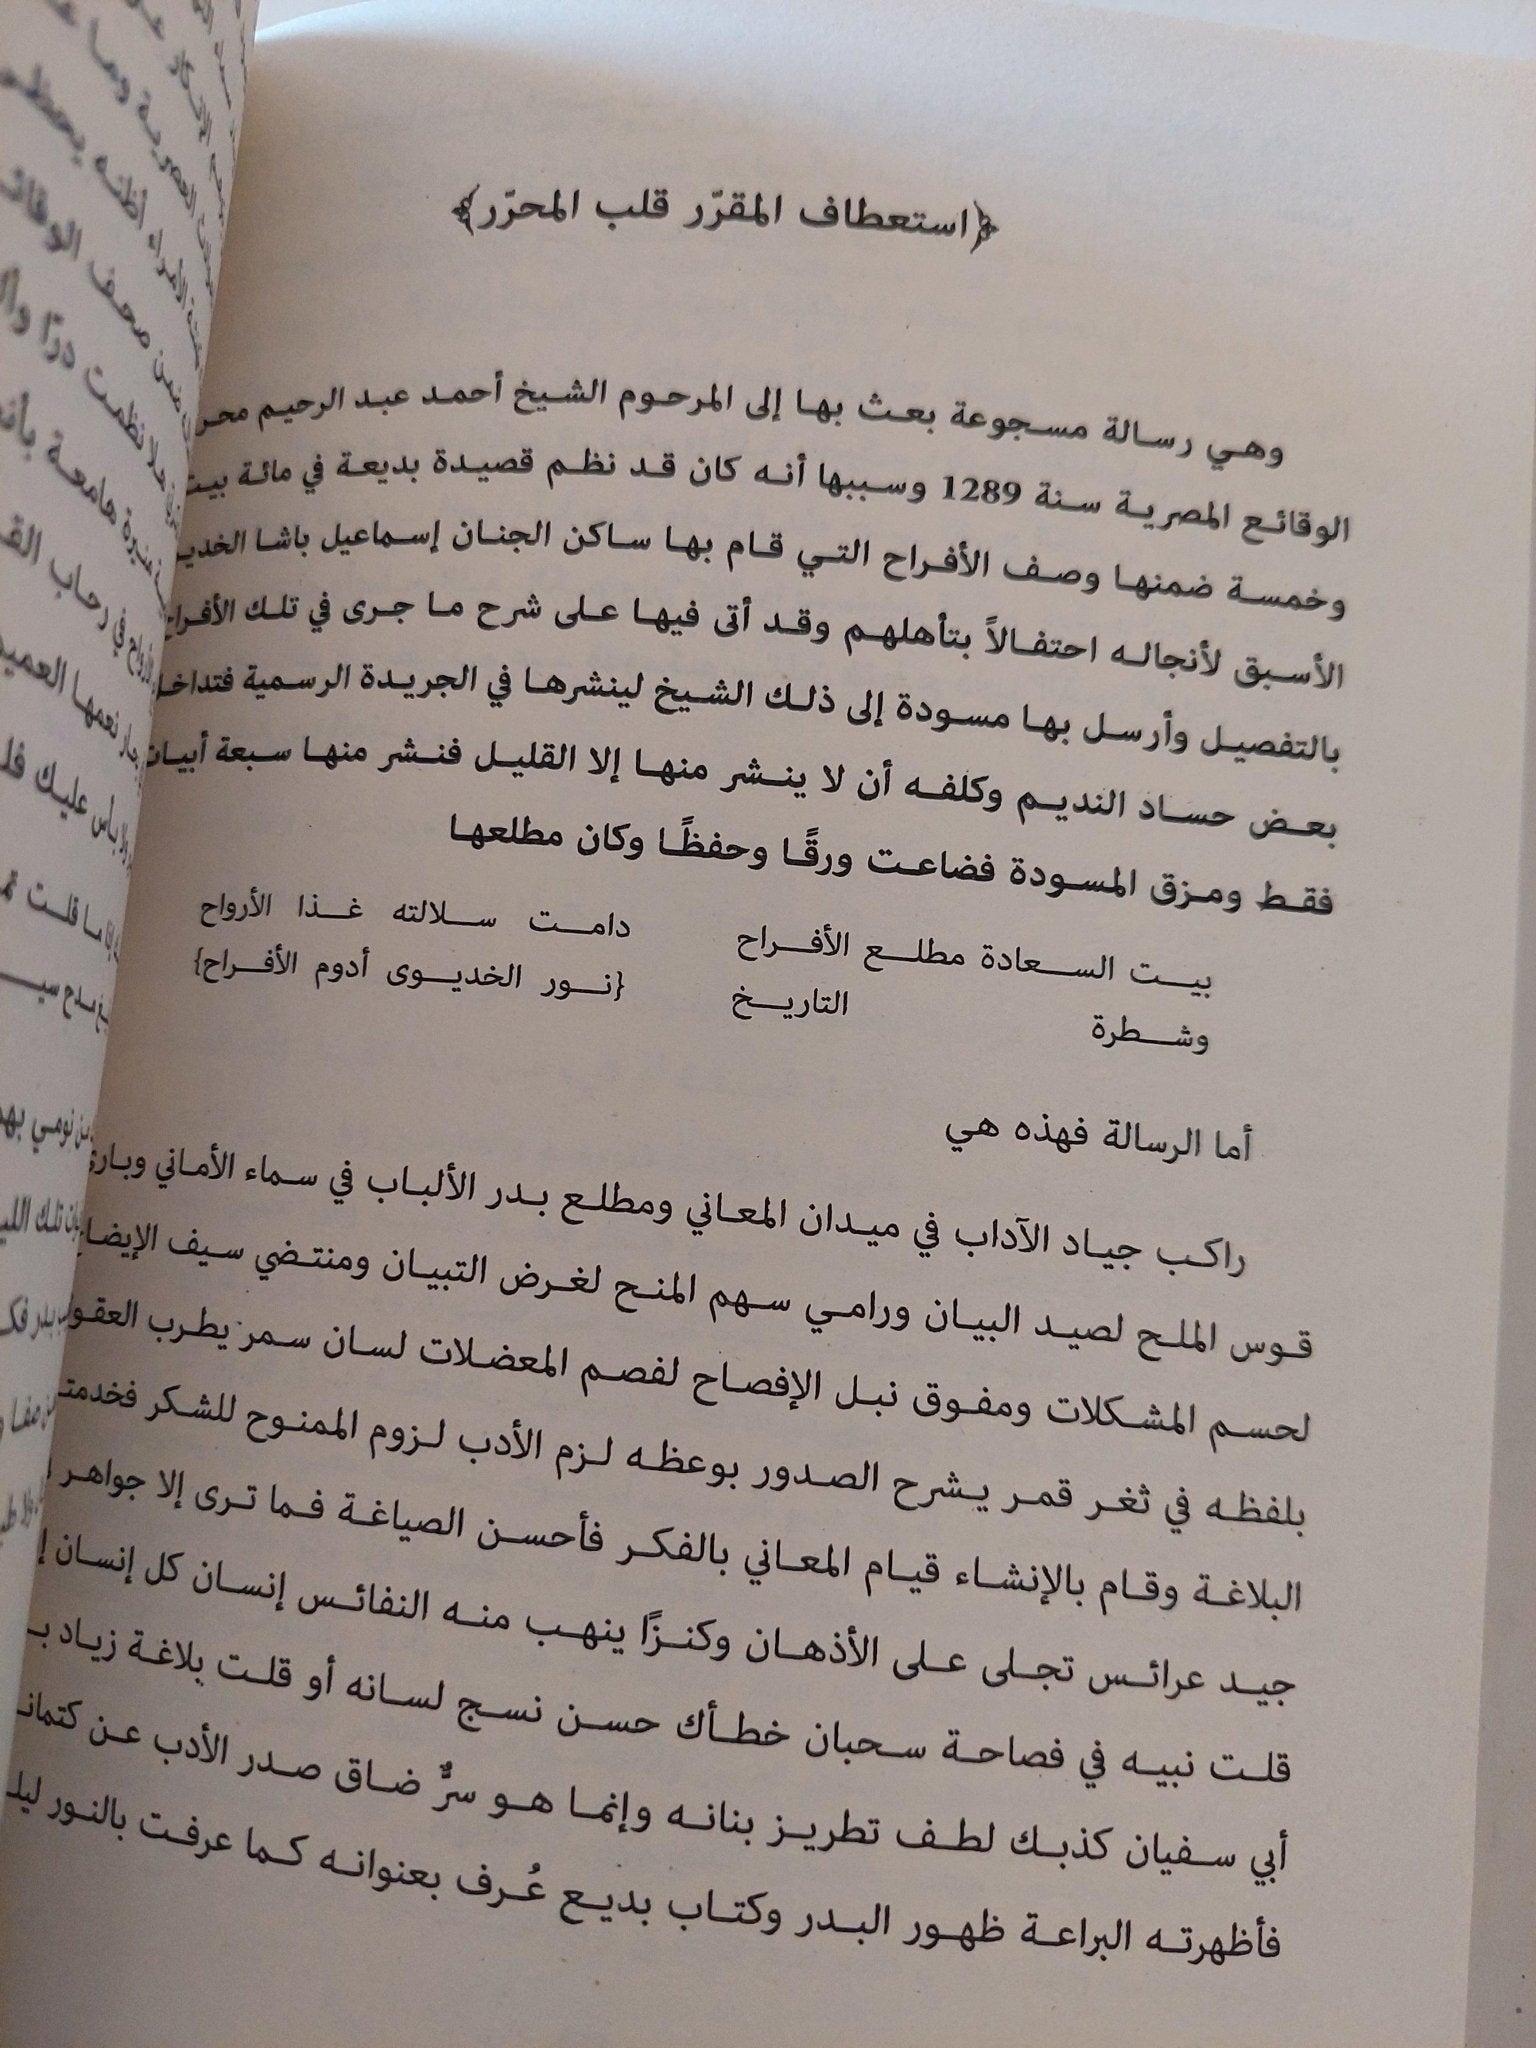 ﴿استعطاف المقرّر قلب المحرّر﴾
وهي رسالة مسجوعة بعث بها إلى المرحوم الشيخ أحمد عبد الرحيم محر
الوقائع المصرية سنة 1289 وسببها أنه كان قد نظم قصيدة بديعة في مائة بيت
وخمسة ضمنها وصف الأفراح التي قام بها ساكن الجنان إسماعيل باشا الخديـ
الأسبق لأنجاله احتفالاً بتأهلهم وقد أتى فيها على شرح ما جرى في تلك الأفراح
بالتفصيل وأرسل بها مسودة إلى ذلك الشيخ لينشرها في الجريدة الرسمية فتداخل
بعض حساد النديم وكلفه أن لا ينشر منها إلا القليل فنشر منها سبعة أبيات
فقط ومزق المسودة فضاعت ورقًا وحفظًا وكان مطلعها
بيت السعادة مطلع الأفراح دامت سلالته غذا الأرواح
وشطرة التاريخ {نور الخديوى أدوم الأفراح}
أما الرسالة فهذه هي
راكب جياد الآداب في ميدان المعاني ومطلع بدر الألباب في سماء الأماني وباري
قوس الملح لصيد البيان ورامي سهم المنح لغرض التبيان ومنتضي سيف الإيضاح
لحسم المشكلات ومفوق نبل الإفصاح لفصم المعضلات لسان سمر يطرب العقول
بلفظه في ثغر قمر يشرح الصدور بوعظه لزم الأدب لزوم الممنوح للشكر فخدمتـ
البلاغة وقام بالإنشاء قيام المعاني بالفكر فأحسن الصياغة فما ترى إلا جواهر
جيد عرائس تجلى على الأذهان وكنزًا ينهب منه النفائس إنسان كل إنسان إ
قلت نبيه في فصاحة سحبان خطأك حسن نسج لسانه أو قلت بلاغة زياد بـ
أبي سفيان كذبك لطف تطريز بنانه وإنما هو سرٌّ ضاق صدر الأدب عن كتمانـ
فأظهرته البراعة ظهور البدر وكتاب بديع عُرف بعنوانه كما عرفت بالنور ليلـ